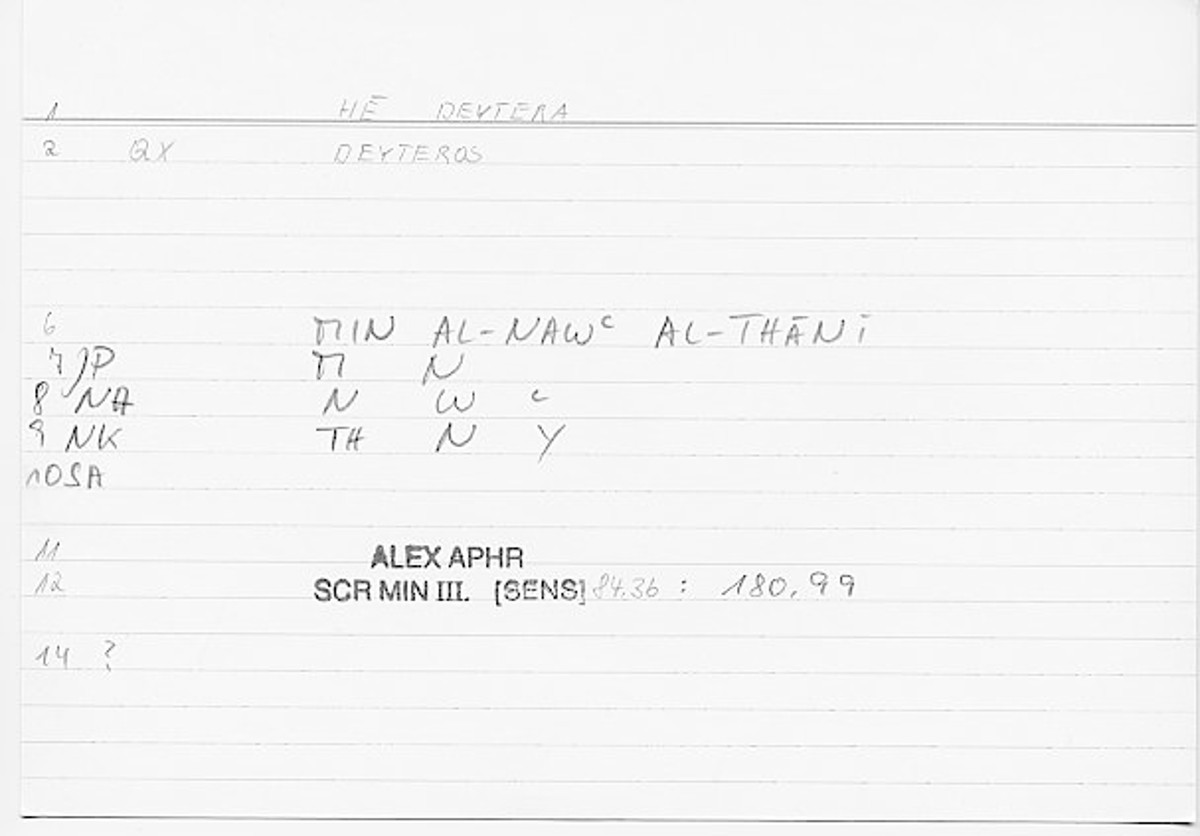 1 HĒ DEYTERA
2 QX DEYTEROS
6 MIN AL-NAWᶜ AL-THĀNĪ
7 JP M N
8 NA N W ᶜ
9 NK TH N Y
10 SA
11 ALEX APHR
12 SCR MIN III. [SENS] 84.36 : 180,99
14 ?